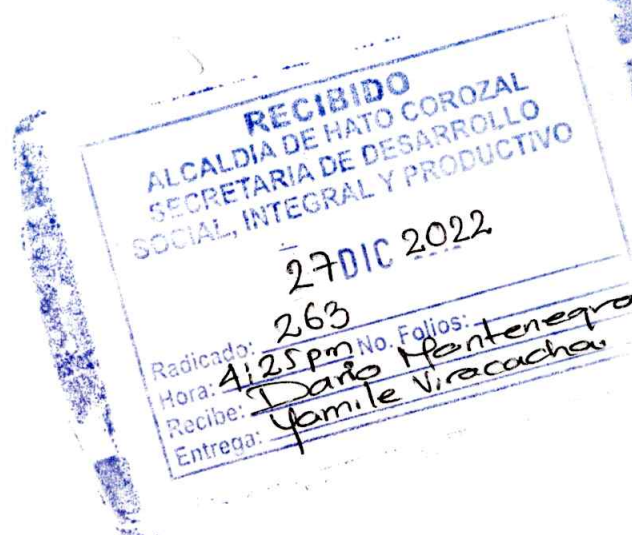 RECIBIDO
ALCALDIA DE HATO COROZAL
SECRETARIA DE DESARROLLO
SOCIAL, INTEGRAL Y PRODUCTIVO
27 DIC 2022
Radicado: 263
Hora: 4:25pm No. Folios:
Recibe: Dario Montenegro
Entrega: Yamile Viracacha